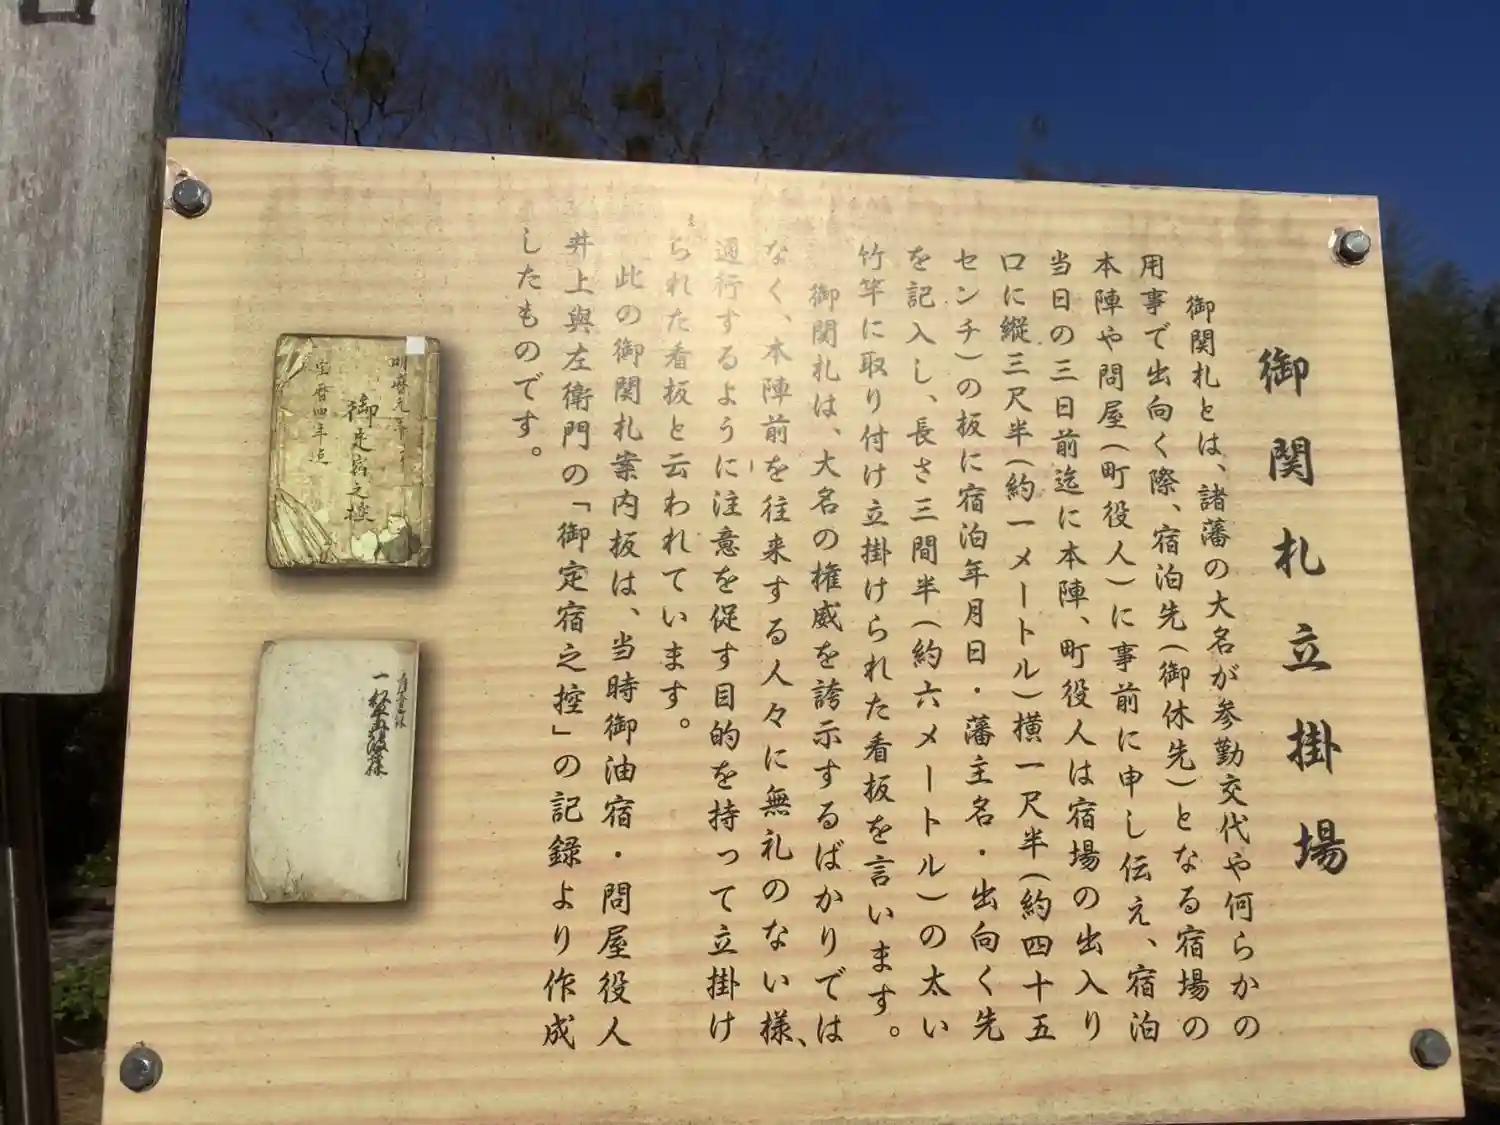 御関札立掛場
御関札とは、諸藩の大名が参勤交代や何らかの
用事で出向く際、宿泊先(御休先)となる宿場の
本陣や問屋(町役人)に事前に申し伝え、宿泊
当日の三日前迄に本陣、町役人は宿場の出入り
口に縦三尺半(約一メートル)横一尺半(約四十五
センチ)の板に宿泊年月日・藩主名・出向く先
を記入し、長さ三間半(約六メートル)の太い
竹竿に取り付け立掛けられた看板を言います。
御関札は、大名の権威を誇示するばかりでは
なく、本陣前を往来する人々に無礼のない様、
通行するように注意を促す目的を持って立掛け
られた看板と云われています。
此の御関札案内板は、当時御油宿・問屋役人
井上與左衛門の「御定宿之控」の記録より作成
したものです。
明暦元年
御定宿之控
宝暦四年迄